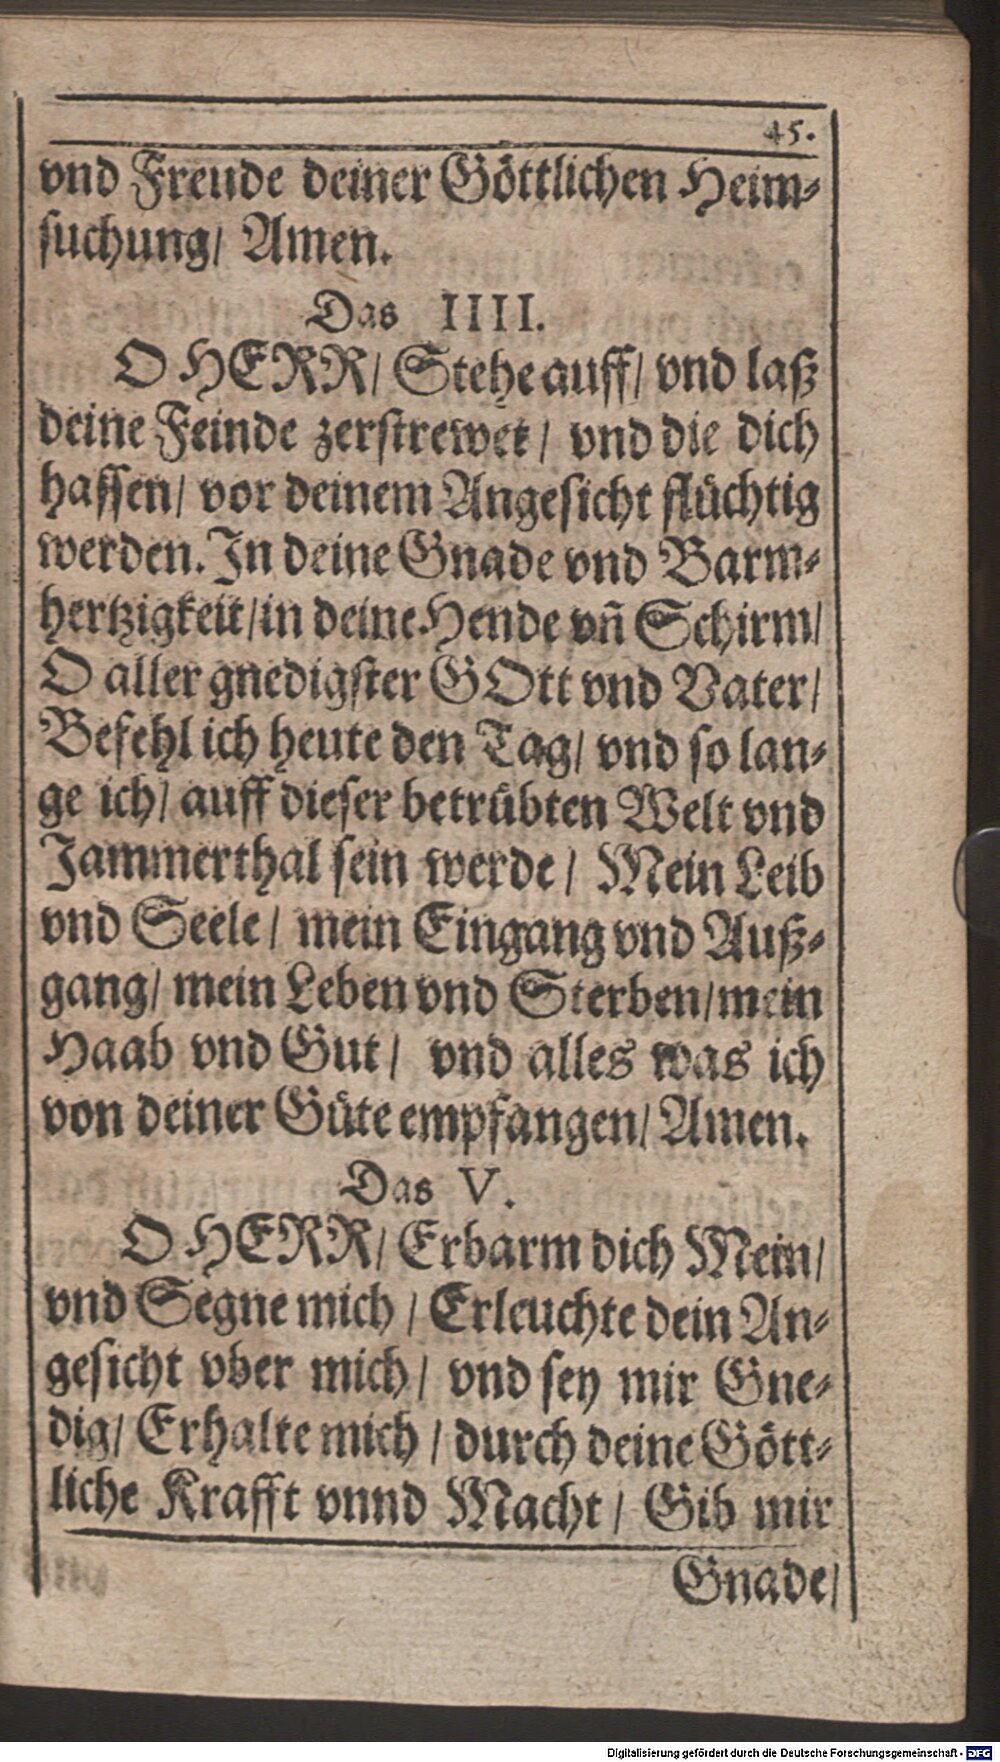 45.
vnd Freude deiner Göttlichen Heim-
suchung/ Amen.
Das IIII.
O HERR/ Stehe auff/ vnd laß
deine Feinde zerstrewet / vnd die dich
hassen/ vor deinem Angesicht flüchtig
werden. In deine Gnade vnd Barm-
hertzigkeit/in deine Hende vñ Schirm/
O aller gnedigster GOtt vnd Vater/
Befehl ich heute den Tag/ vnd so lan-
ge ich/ auff dieser betrübten Welt vnd
Jammerthal sein werde / Mein Leib
vnd Seele / mein Eingang vnd Auß-
gang/ mein Leben vnd Sterben/mein
Haab vnd Gut / vnd alles was ich
von deiner Güte empfangen/ Amen.
Das V.
O HERR/ Erbarm dich Mein/
vnd Segne mich / Erleuchte dein An-
gesicht vber mich/ vnd sey mir Gne-
dig/ Erhalte mich / durch deine Gött-
liche Krafft vnnd Macht / Gib mir
Gnade/
Digitalisierung gefördert durch die Deutsche Forschungsgemeinschaft - DFG